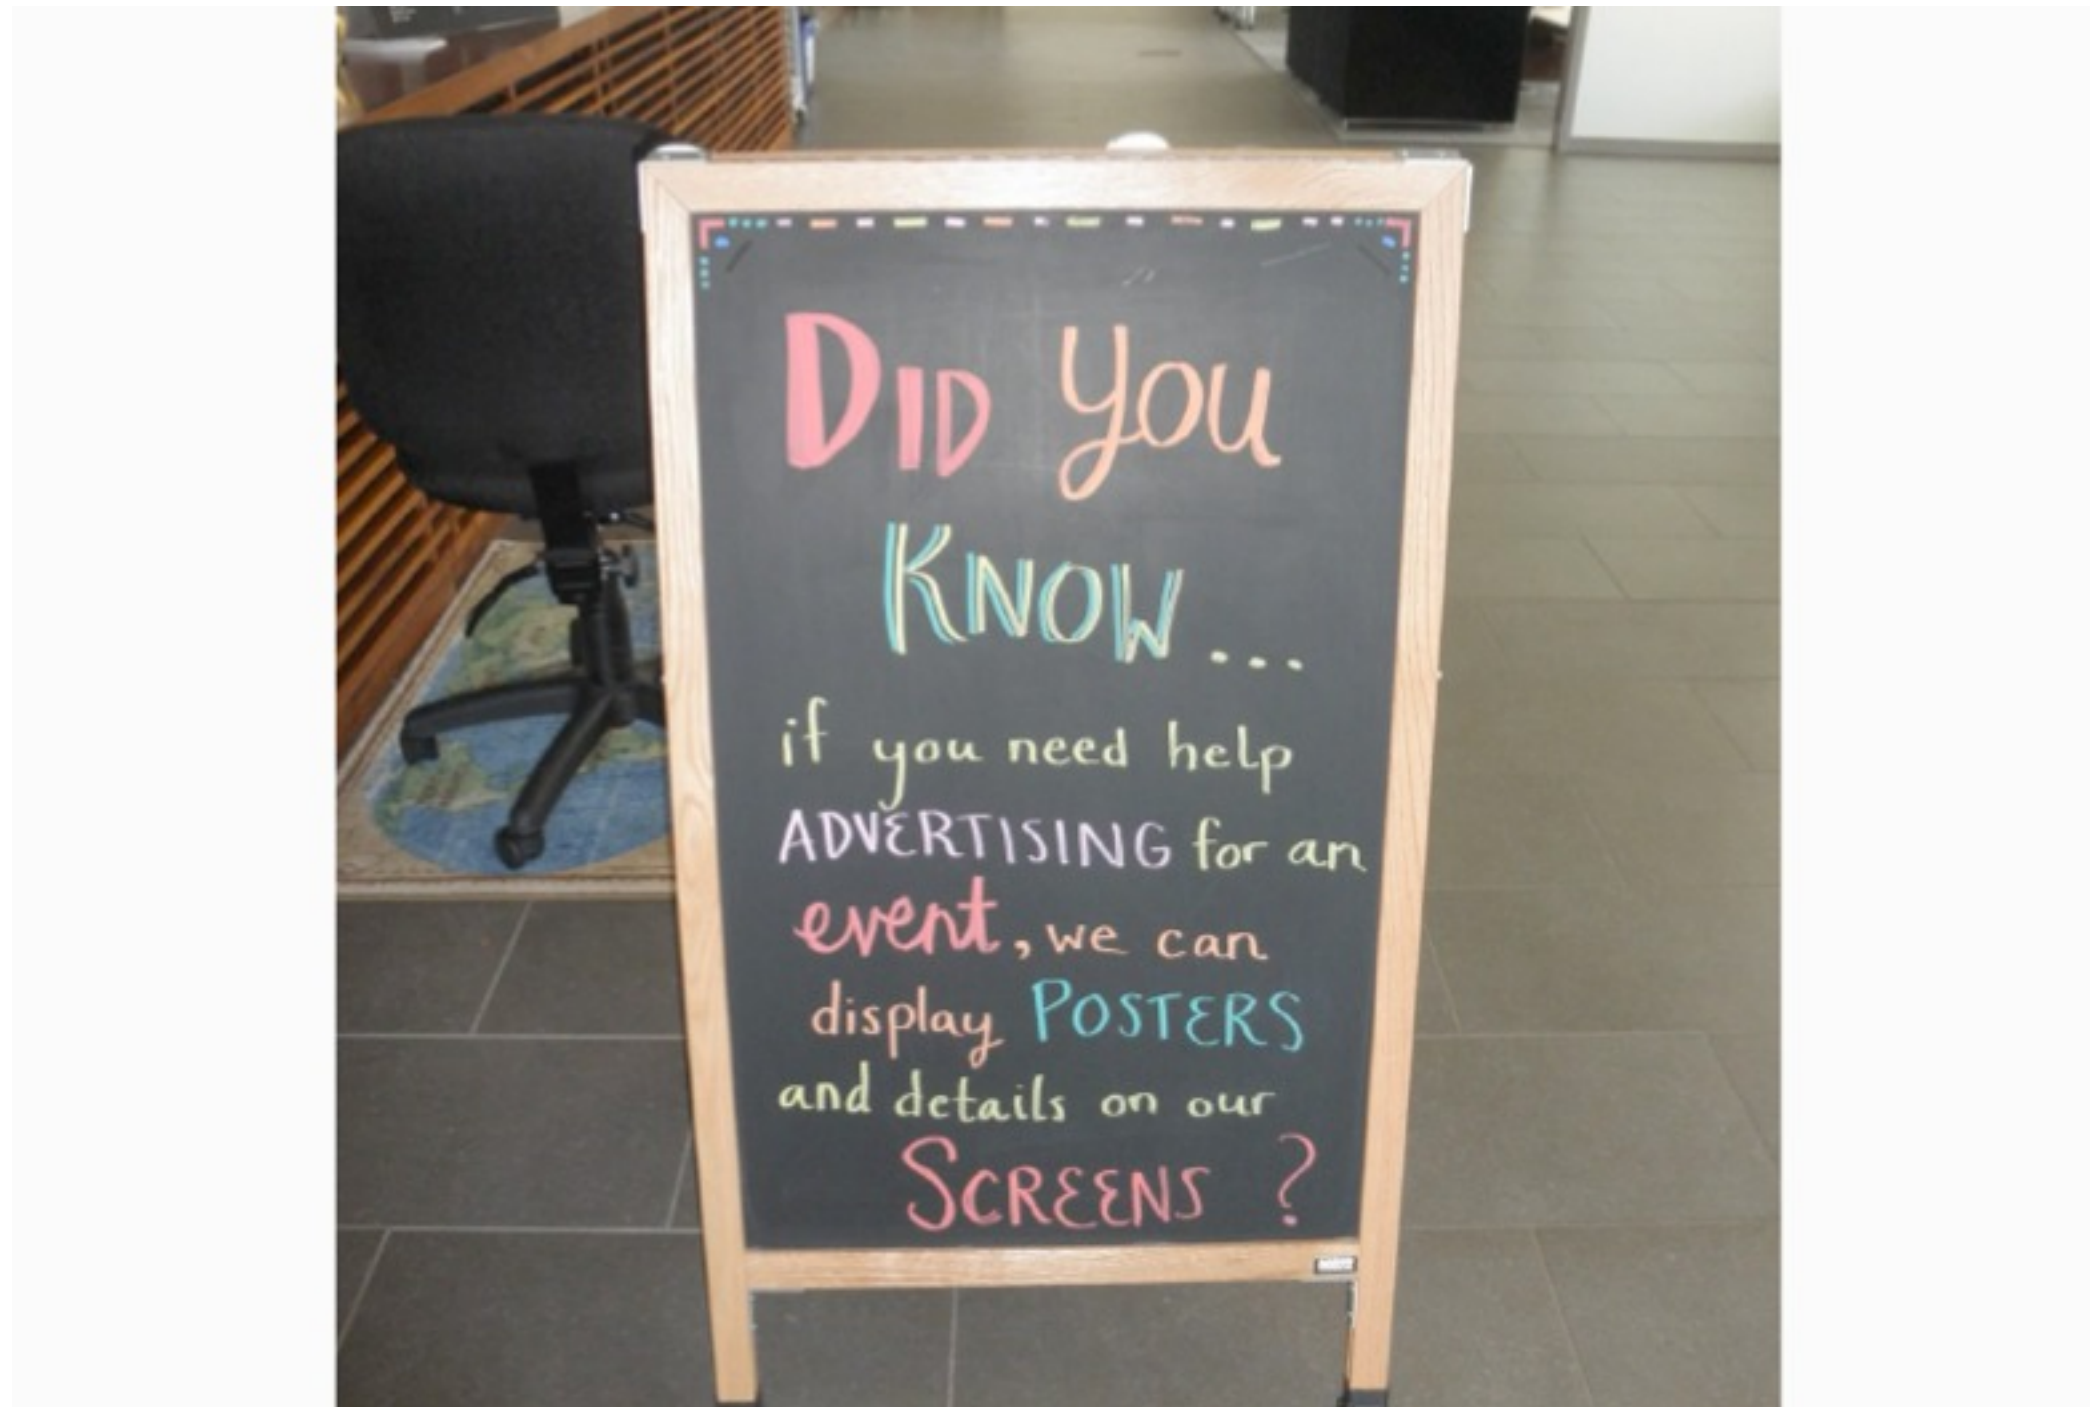 DID you
KNOW...
if you need help
ADVERTISING for an
event, we can
display POSTERS
and details on our
SCREENS ?